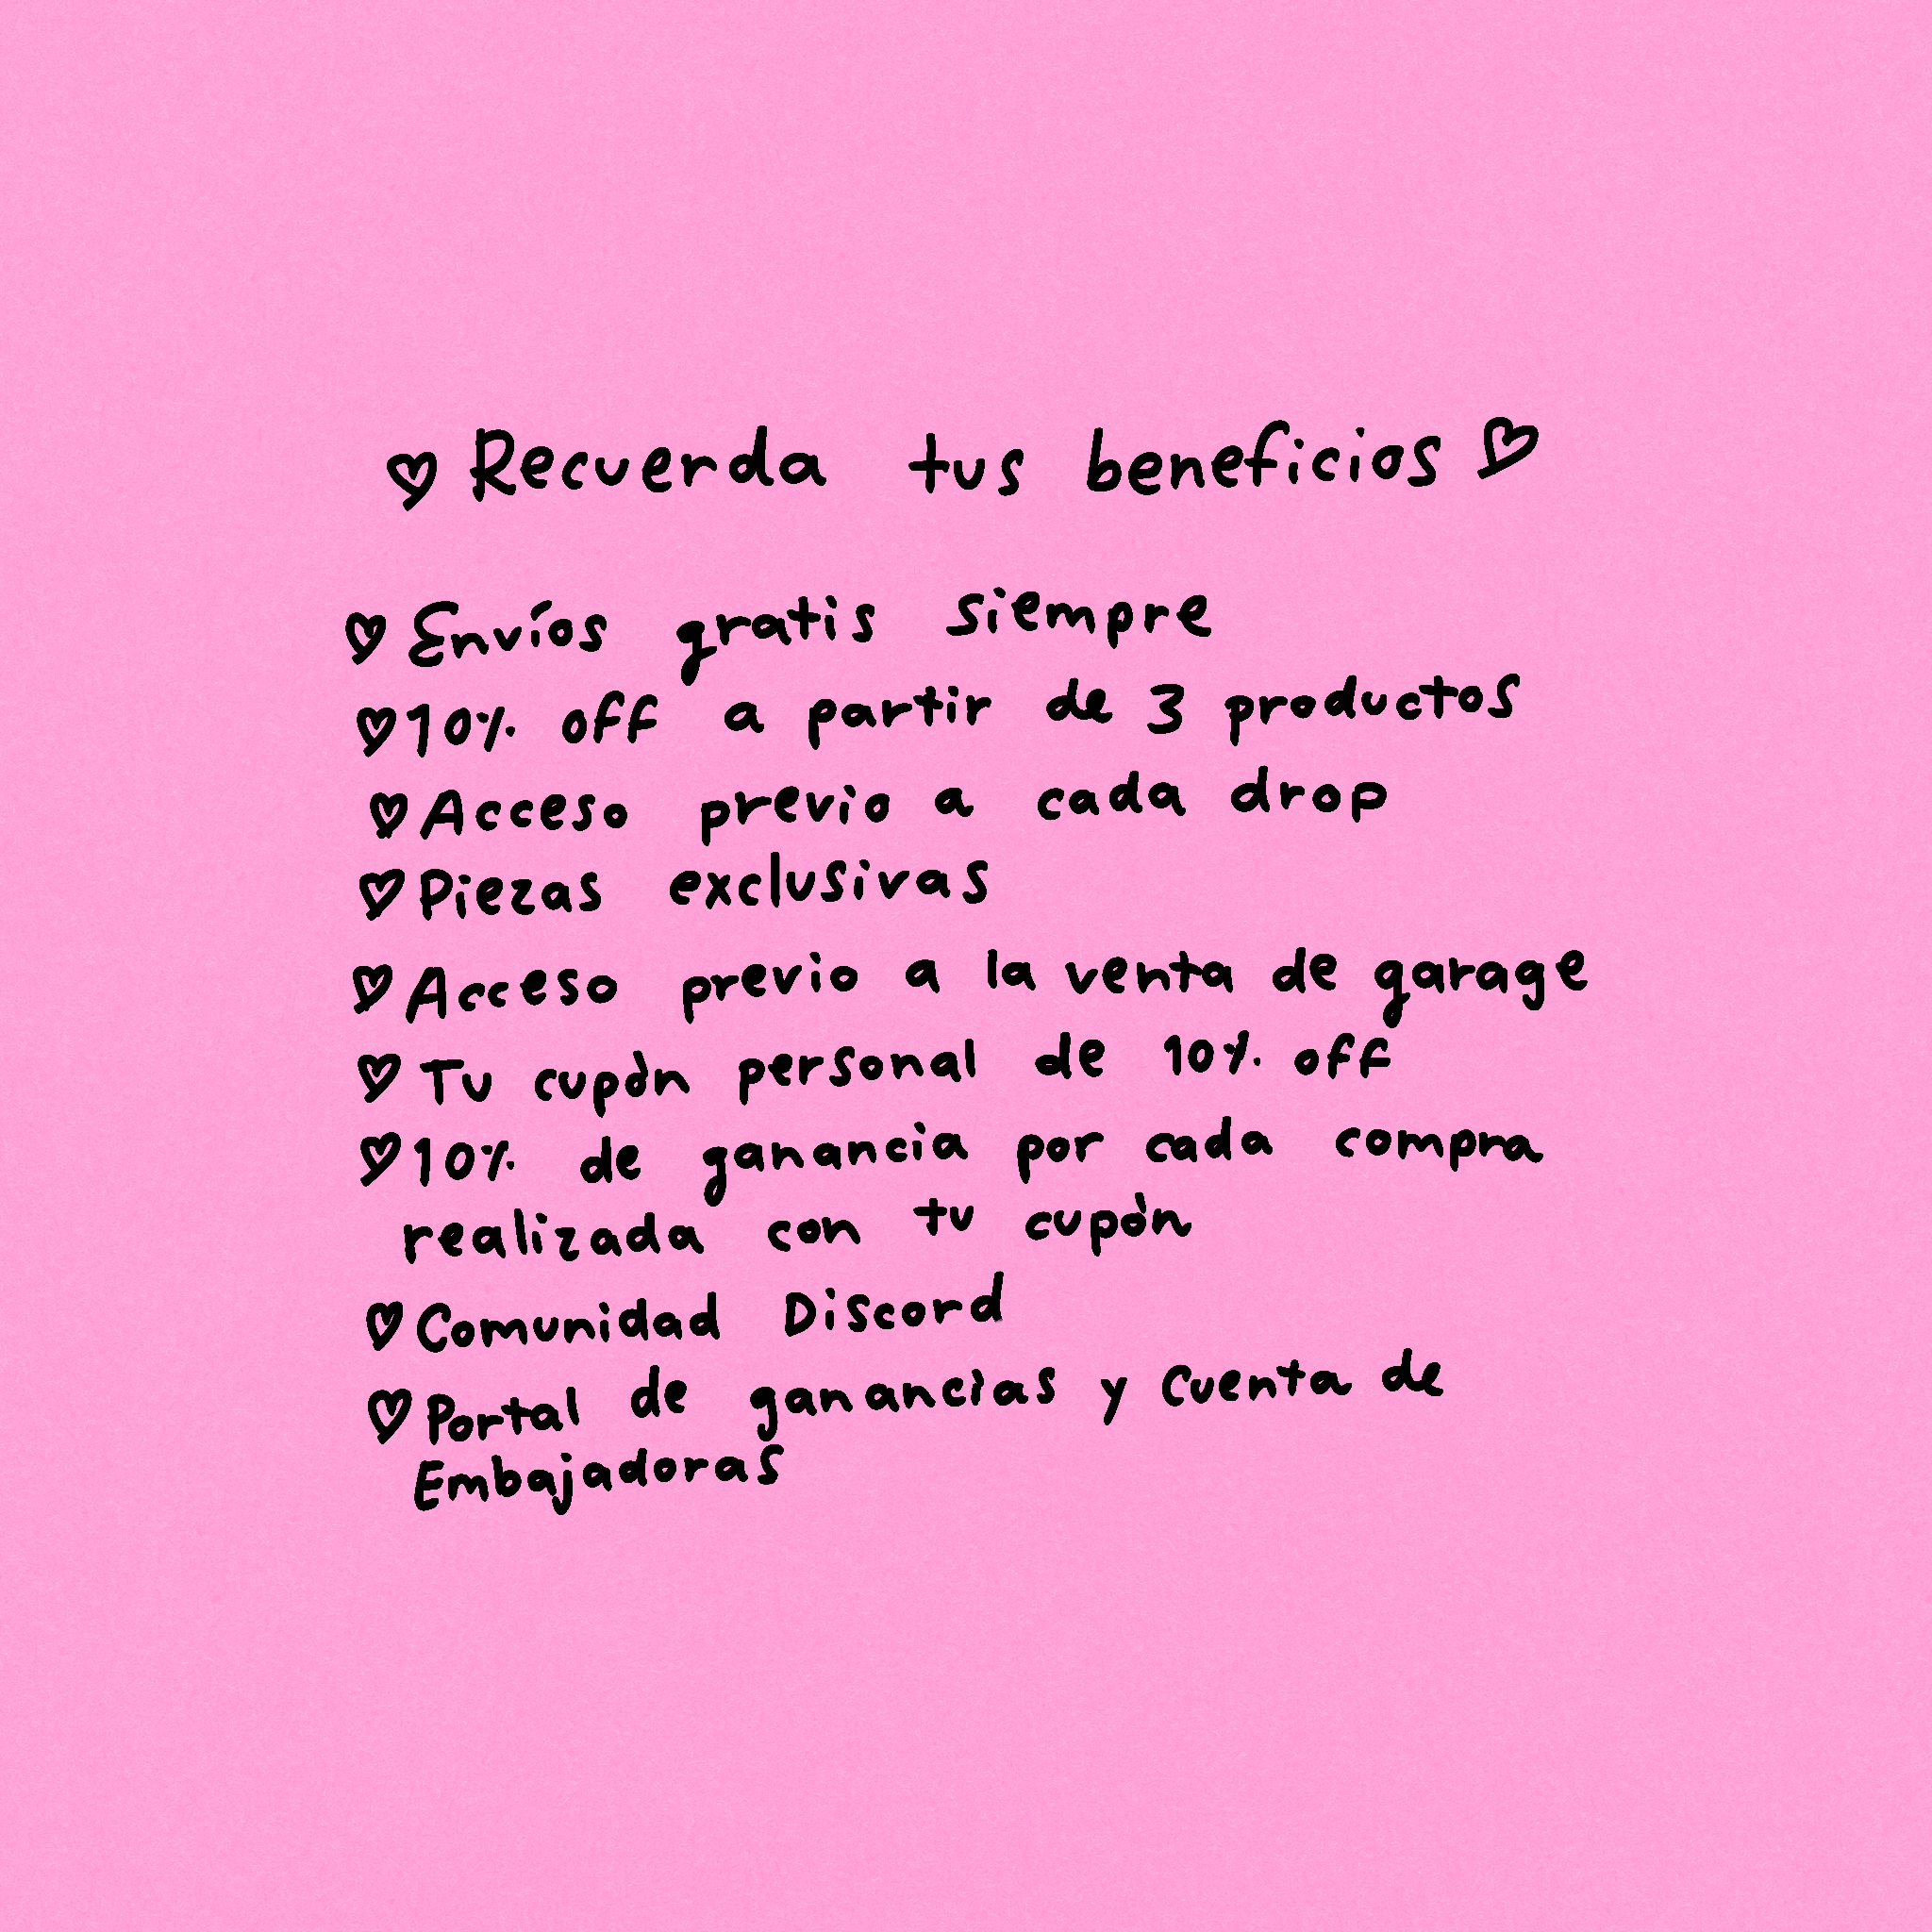 ♡ Recuerda tus beneficios ♡
♡ Envíos gratis siempre
♡ 10% off a partir de 3 productos
♡ Acceso previo a cada drop
♡ Piezas exclusivas
♡ Acceso previo a la venta de garage
♡ Tu cupòn personal de 10% off
♡ 10% de ganancia por cada compra
realizada con tu cupòn
♡ Comunidad Discord
♡ Portal de ganancias y cuenta de
Embajadoras